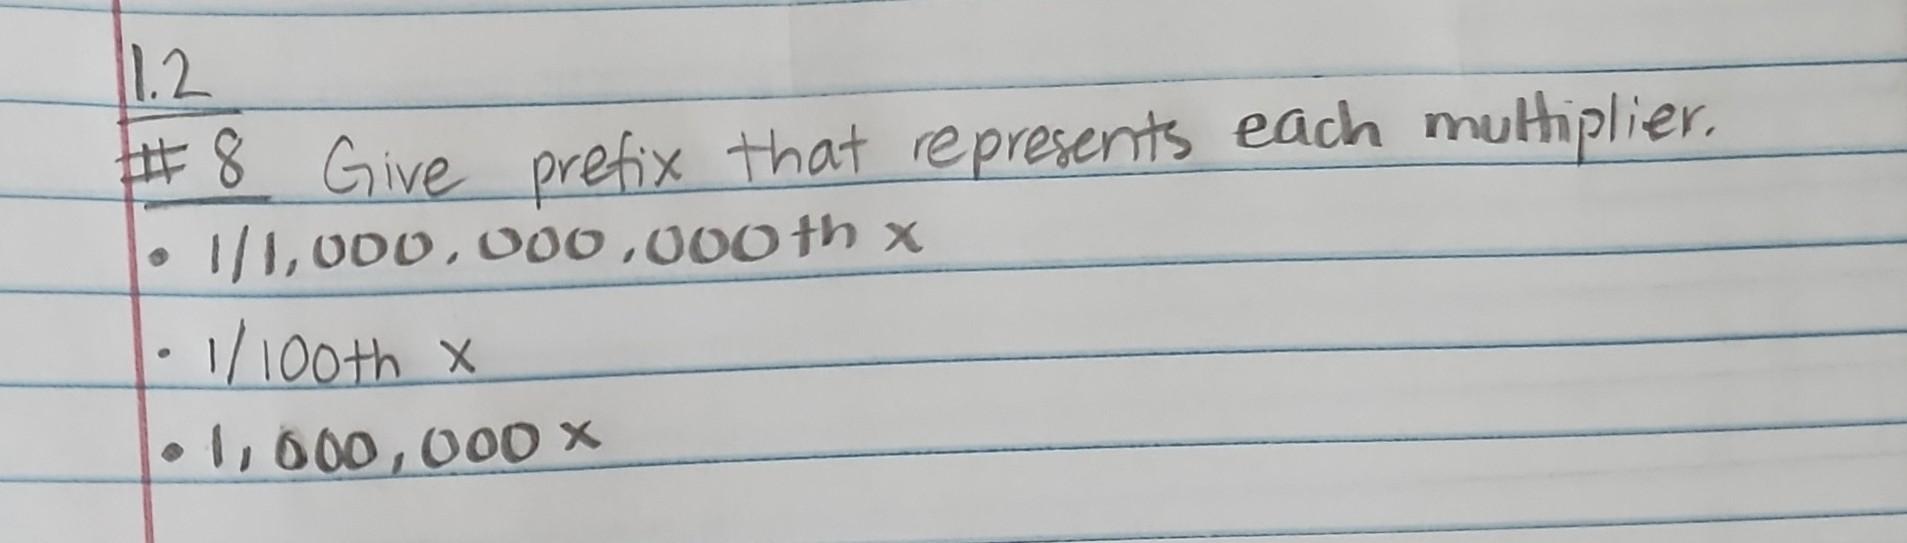 1.2
# 8 Give prefix that represents each multiplier.
• 1/1,000,000,000th x
• 1/100th x
• 1,000,000 x